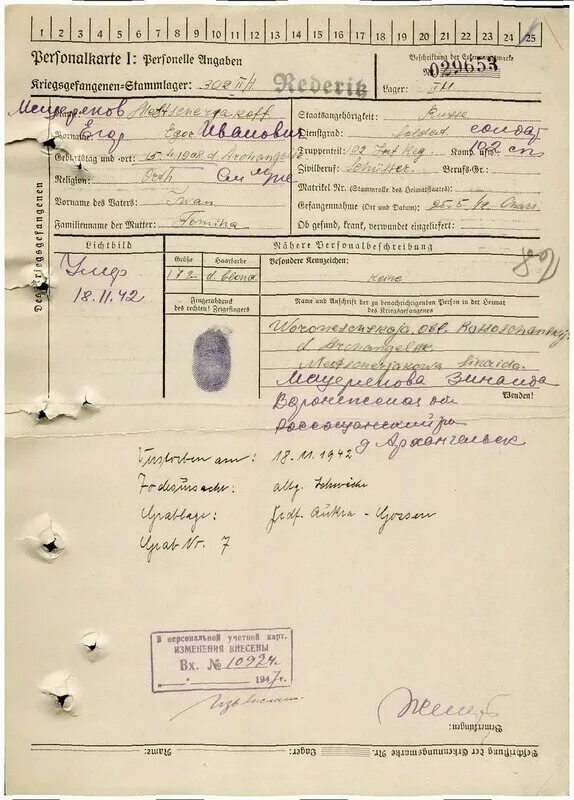 1 2 3 4 5 6 7 8 9 10 11 12 13 14 15 16 17 18 19 20 21 22 23 24 25
Personalkarte I: Personelle Angaben
Beschriftung der Erkennungsmarke
Nr. 029653
Kriegsgefangenen-Stammlager: Rederitz
Lager:
Des Kriegsgefangenen
Мещеряков Metscherjakoff
Staatsangehörigkeit: Russe
Vorname: Егор Egor Иванович
Dienstgrad: Soldat солдат
Geburtstag und -ort: 15.4.1908 d. Archangelsk
Truppenteil: 102 Inf Reg. Komp. usw. 102 сп
Religion: Orth
Zivilberuf: Berufs-Gr.:
Matrikel Nr. (Stammrolle des Heimatstaates):
Vorname des Vaters: Iwan
Gefangennahme (Ort und Datum): 25.5.42
Familienname der Mutter: Fomina
Ob gesund, krank, verwundet eingeliefert:
Lichtbild
Nähere Personalbeschreibung
Größe Haarfarbe Besondere Kennzeichen:
172 d. blond keine
Умер
18.11.42
Fingerabdruck
des rechten Zeigefingers
Name und Anschrift der zu benachrichtigenden Person in der Heimat
des Kriegsgefangenen
d. Archangelsk
Metscherjakowa Sinaida
Мещерякова Зинаида
Wenden!
Воронежская об
Россошанский р-н
д Архангельск
Verstorben am: 18.11.1942
Todesursache: allg. Schwäche
Grablage:
Grab Nr. 7
В персональной учетной карт.
ИЗМЕНЕНИЯ ВНЕСЕНЫ
Вх. № 10924
1947 г.
Bemerkungen:
Beschriftung der Erkennungsmarke Nr. Lager: Name: